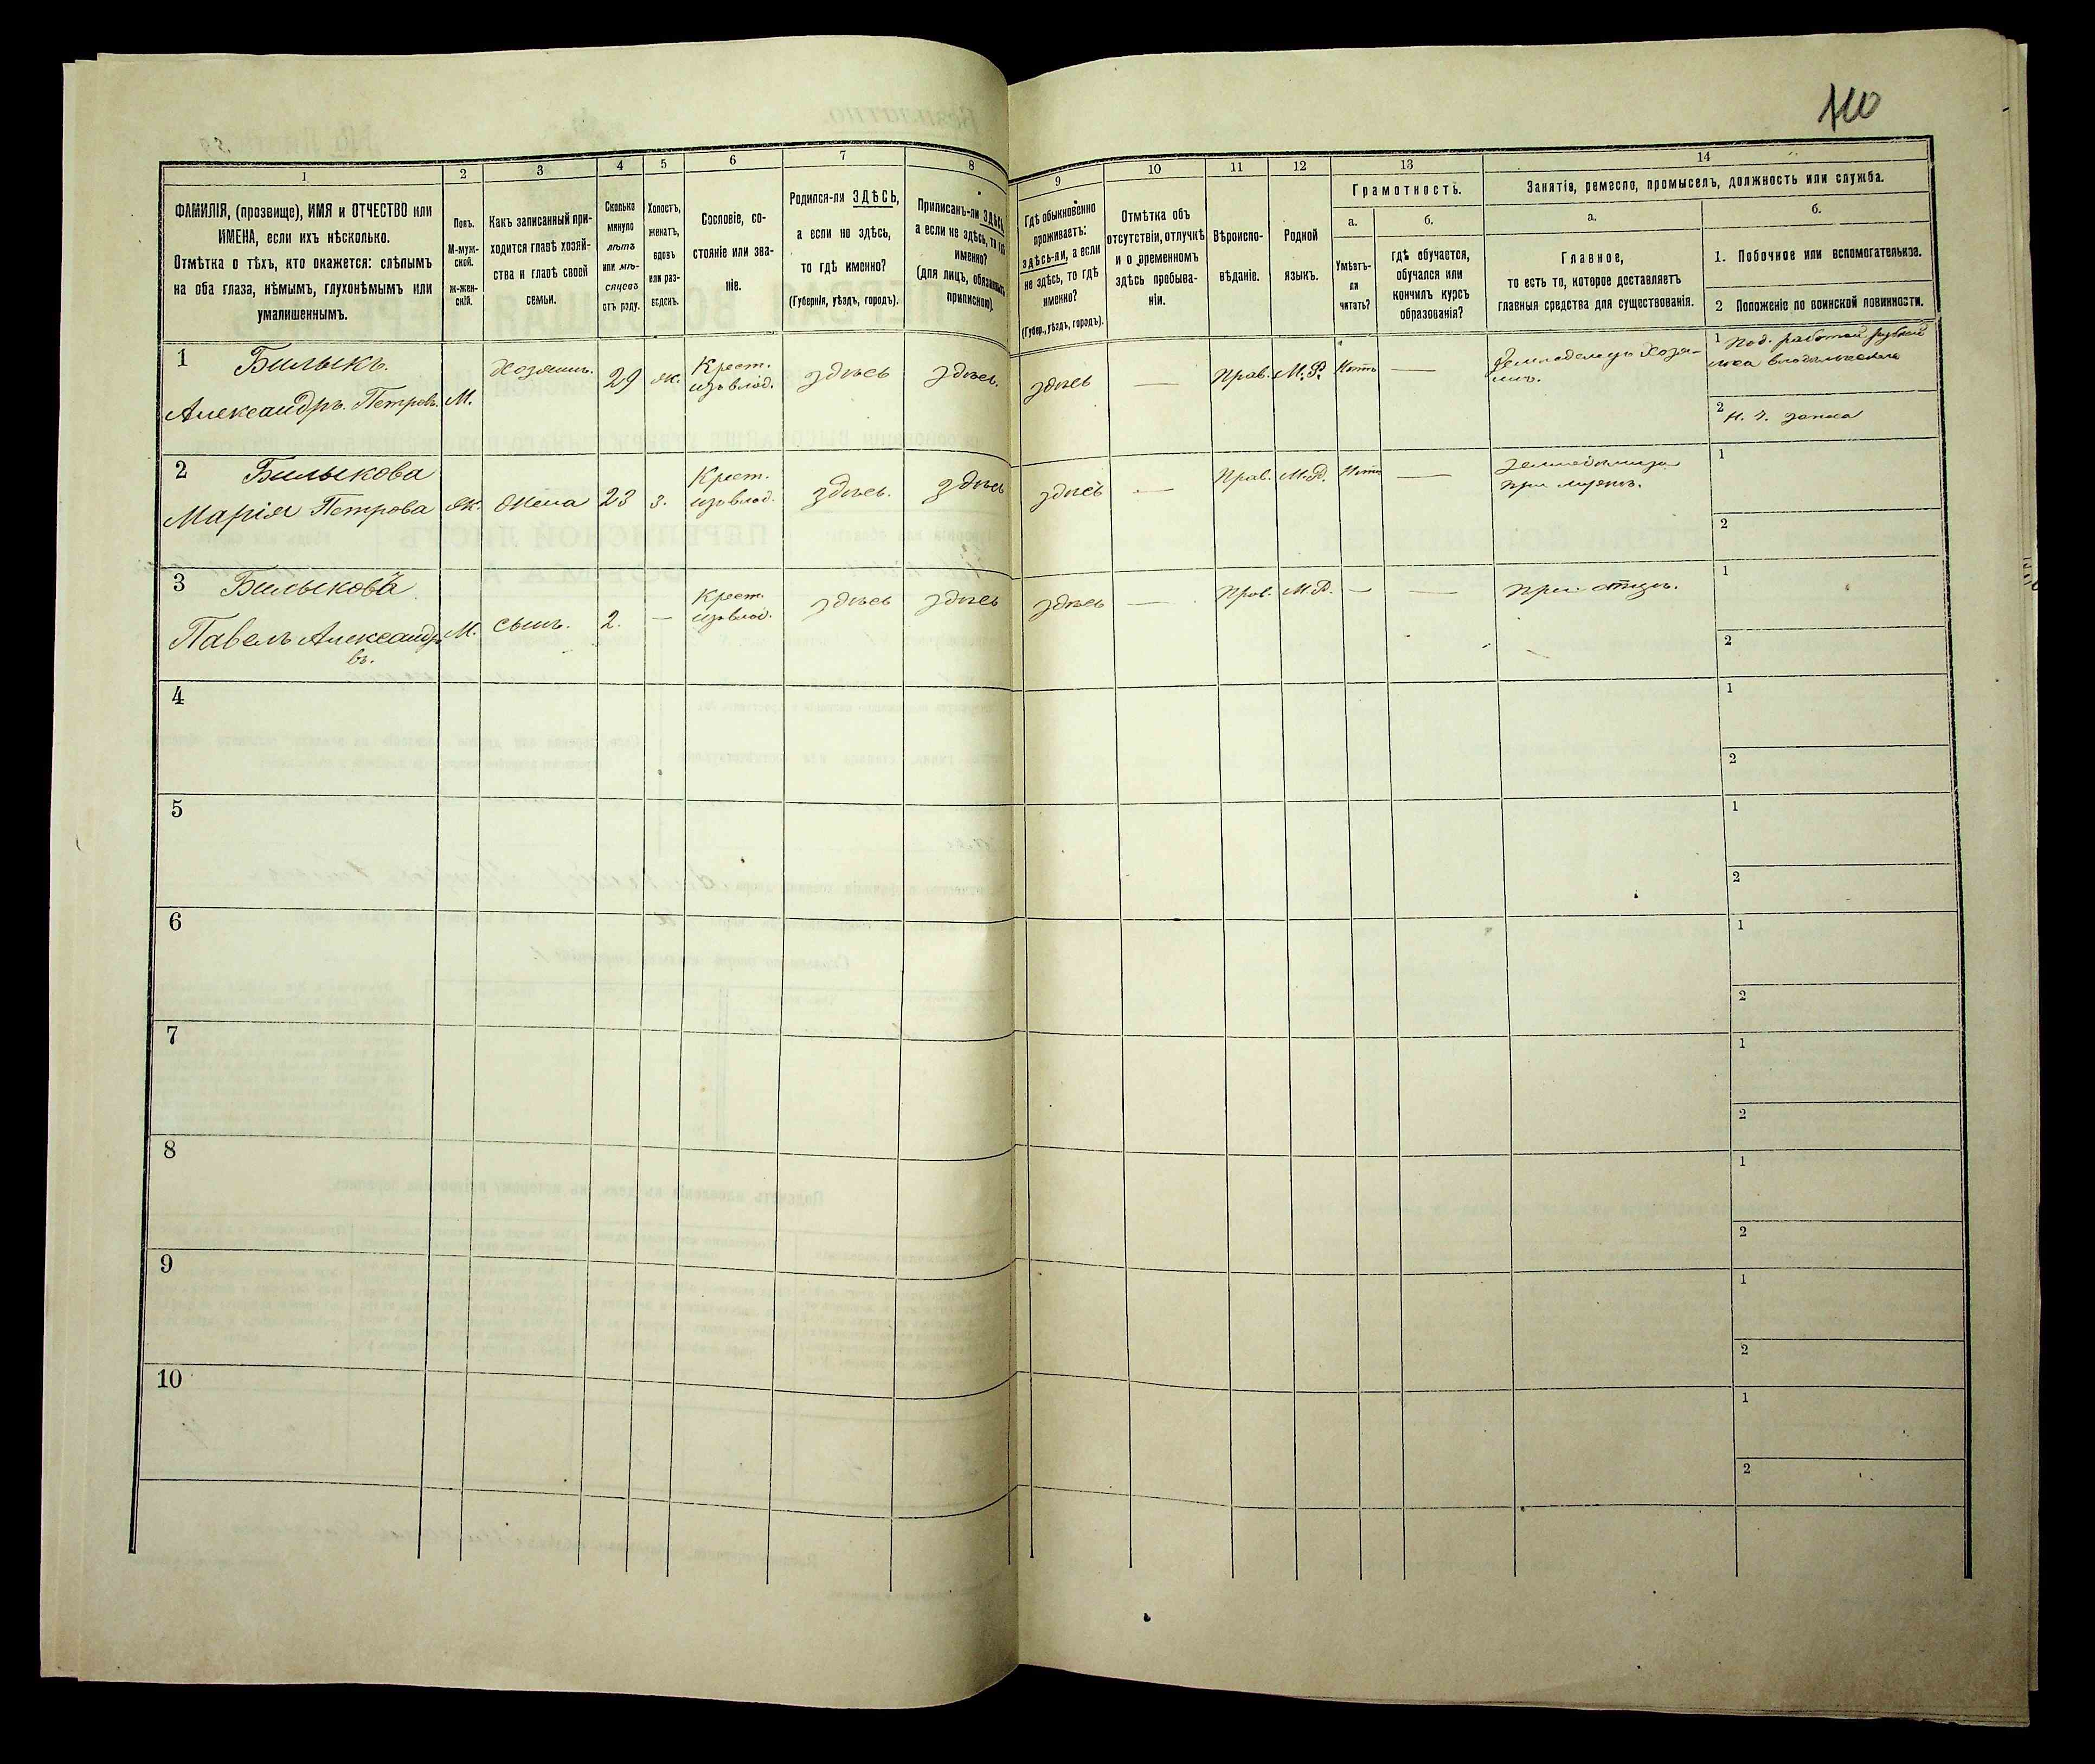 110
1
2
3
4
5
6
7
8
9
10
11
12
13
14
ФАМИЛІЯ, (прозвище), ИМЯ и ОТЧЕСТВО или
ИМЕНА, если ихъ нѣсколько.
Отмѣтка о тѣхъ, кто окажется: слѣпымъ
на оба глаза, нѣмымъ, глухонѣмымъ или
умалишеннымъ.
Полъ.
М-муж-
ской.
ж-жен-
скій.
Какъ записанный при-
ходится главѣ хозяй-
ства и главѣ своей
семьи.
Сколько
минуло
лѣтъ
или мѣ-
сяцевъ
отъ роду.
Холостъ,
женатъ,
вдовъ
или раз-
веденъ.
Сословіе, со-
стояніе или зва-
ніе.
Родился-ли ЗДѢСЬ,
а если не здѣсь,
то гдѣ именно?
(Губернія, уѣздъ, городъ).
Приписанъ-ли ЗДѢСЬ,
а если не здѣсь, то гдѣ
именно?
(для лицъ, обязанныхъ
припискою).
Гдѣ обыкновенно
проживаетъ:
здѣсь-ли, а если
не здѣсь, то гдѣ
именно?
(Губер., уѣздъ, городъ).
Отмѣтка объ
отсутствіи, отлучкѣ
и о временномъ
здѣсь пребыва-
ніи.
Вѣроиспо-
вѣданіе.
Родной
языкъ.
Грамотность.
а.
Умѣетъ-
ли
читать?
б.
гдѣ обучается,
обучался или
кончилъ курсъ
образованія?
Занятія, ремесло, промыселъ, должность или служба.
а.
Главное,
то есть то, которое доставляетъ
главныя средства для существованія.
б.
1. Побочное или вспомогательное.
2 Положеніе по воинской повинности.
1 Билыкъ.
Александръ Петровъ. М.
Хозяинъ. 29 ж.
Крест.
изъ влад.
здѣсь здѣсь. здѣсь — Прав. М.Р. Нѣтъ —
Земледелецъ Хозя-
инъ.
1 Под. работой
2
2 Билыкова
Марія Петрова ж. жена 23 з.
Крест.
изъ влад.
здѣсь. здѣсь здѣсь — Прав. М.Р. Нѣтъ —
при мужѣ.
1
2
3 Билыковъ
Павелъ Александро
въ.
М. сынъ. 2. —
Крест.
изъ влад.
здѣсь здѣсь здѣсь — Прав. М.Р. — — При отцѣ.
1
2
4
1
2
5
1
2
6
1
2
7
1
2
8
1
2
9
1
2
10
1
2